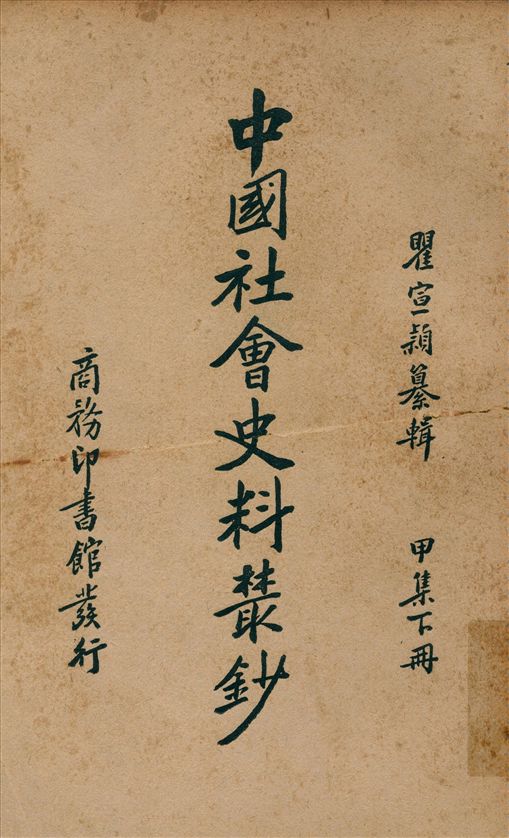 瞿宣穎纂輯 甲集下冊
中國社會史料叢鈔
商務印書館發行